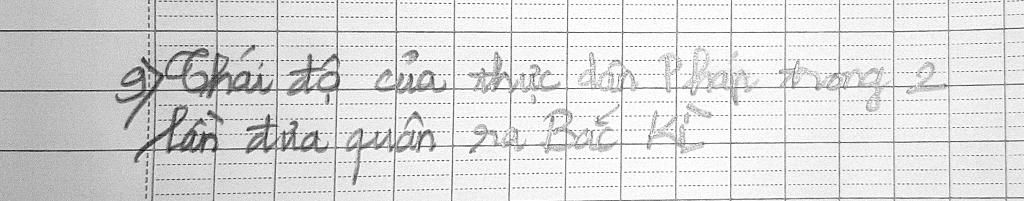 g) Thái độ của thực dân Pháp trong 2
lần đưa quân ra Bắc Kì